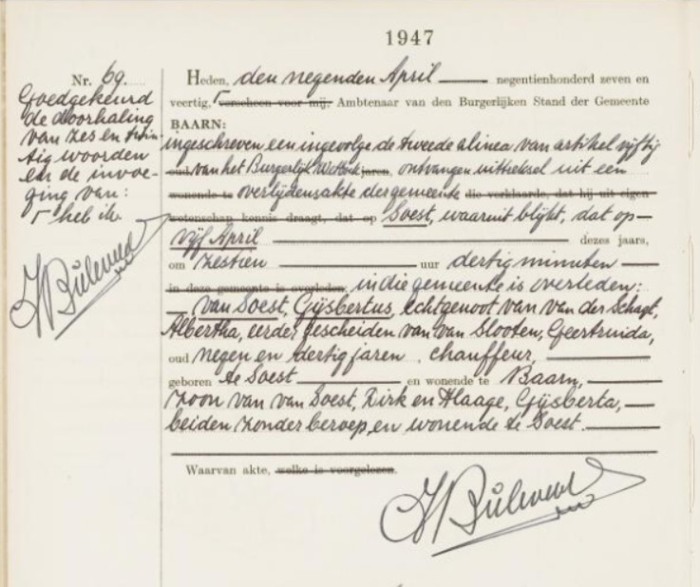 1947
Nr. 69.
Goedgekeurd
de doorhaling
van zes en twin-
tig woorden
en de invoe-
ging van:
Γ heb ik
Heden, den negenden April negentienhonderd zeven en
veertig, Γ verscheen voor mij, Ambtenaar van den Burgerlijken Stand der Gemeente
BAARN:
ingeschreven een ingevolge de tweede alinea van artikel vijftig
oud van het Burgerlijk Wetboek jaren, ontvangen uittreksel uit een
wonende te overlijdensakte der gemeente die verklaarde, dat hij uit eigen
wetenschap kennis draagt, dat op Soest, waaruit blijkt, dat op
vijf April dezes jaars,
om zestien uur dertig minuten
in deze gemeente is overleden: in die gemeente is overleden:
van Soest, Gijsbertus, echtgenoot van van der Schagt,
Albertha, eerder gescheiden van van Slooten, Geertruida,
oud negen en dertig jaren, chauffeur,
geboren te Soest en wonende te Baarn,
zoon van van Soest, Dirk en Klaage, Gijsberta,
beiden zonder beroep en wonende te Soest.
Waarvan akte, welke is voorgelezen.